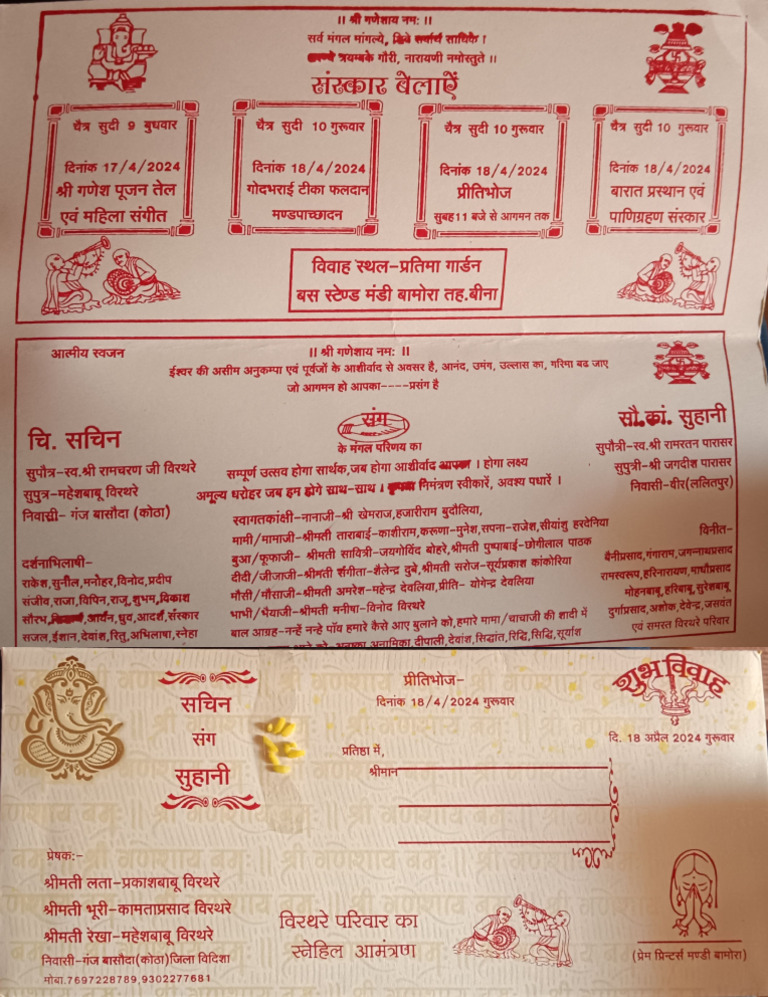 ॥ श्री गणेशाय नमः ॥
सर्व मंगल मांगल्ये, शिवे सर्वार्थ साधिके ।
त्रयम्बके गौरी, नारायणी नमोस्तुते ॥
संस्कार बेलाऐं
चैत्र सुदी 9 बुधवार
दिनांक 17/4/2024
श्री गणेश पूजन तेल
एवं महिला संगीत
चैत्र सुदी 10 गुरूवार
दिनांक 18/4/2024
गोदभराई टीका फलदान
मण्डपाच्छादन
चैत्र सुदी 10 गुरूवार
दिनांक 18/4/2024
प्रीतिभोज
सुबह11 बजे से आगमन तक
चैत्र सुदी 10 गुरूवार
दिनांक 18/4/2024
बारात प्रस्थान एवं
पाणिग्रहण संस्कार
विवाह स्थल-प्रतिमा गार्डन
बस स्टेण्ड मंडी बामोरा तह.बीना
आत्मीय स्वजन
॥ श्री गणेशाय नमः ॥
ईश्वर की असीम अनुकम्पा एवं पूर्वजों के आशीर्वाद से अवसर है, आनंद, उमंग, उल्लास का, गरिमा बढ जाए
जो आगमन हो आपका----प्रसंग है
चि. सचिन
सुपौत्र-स्व.श्री रामचरण जी विरथरे
सुपुत्र-महेशबाबू विरथरे
निवासी- गंज बासौदा (कोठा)
संग
के मंगल परिणय का
सौ.कां. सुहानी
सुपौत्री-स्व.श्री रामरतन पारासर
सुपुत्री-श्री जगदीश पारासर
निवासी-वीर(ललितपुर)
सम्पूर्ण उत्सव होगा सार्थक,जब होगा आशीर्वाद आपका । होगा लक्ष्य
अमूल्य धरोहर जब हम होगे साथ-साथ । कृपया निमंत्रण स्वीकारें, अवश्य पधारें ।
स्वागतकांक्षी-नानाजी-श्री खेमराज,हजारीराम बुदौलिया,
मामी/मामाजी-श्रीमती ताराबाई-काशीराम,करूणा-मुनेश,सपना-राजेश,सीयांशु हरदेनिया
बुआ/फूफाजी- श्रीमती सावित्री-जयगोविंद बोहरे,श्रीमती पुष्पाबाई-छोगीलाल पाठक
दीदी/जीजाजी-श्रीमती संगीता-शैलेन्द्र दुबे,श्रीमती सरोज-सूर्यप्रकाश कांकोरिया
मौसी/मौसाजी-श्रीमती अमरेश-महेन्द्र देवलिया,प्रीति- योगेन्द्र देवलिया
भाभी/भैयाजी-श्रीमती मनीषा-विनोद विरथरे
बाल आग्रह-नन्हें नन्हे पॉव हमारे कैसे आए बुलाने को,हमारे मामा/चाचाजी की शादी में
अनामिका,दीपाली,देवांश,सिद्धांत,रिद्धि,सिद्धि,सूर्यांश
दर्शनाभिलाषी-
राकेश,सुनील,मनोहर,विनोद,प्रदीप
संजीव,राजा,विपिन,राजू,शुभम,विकाश
सौरभ,आर्यन,ध्रुव,आदर्श,संस्कार
सजल,ईशान,देवांश,रितु,अभिलाषा,स्नेहा
विनीत-
बैनीप्रसाद,गंगाराम,जगन्नाथप्रसाद
रामस्वरूप,हरिनारायण,माधौप्रसाद
मोहनबाबू,हरिबाबू,सुरेशबाबू
दुर्गाप्रसाद,अशोक,देवेन्द्र,जसवंत
एवं समस्त विरथरे परिवार
सचिन
संग
सुहानी
प्रीतिभोज-
दिनांक 18/4/2024 गुरूवार
शुभ विवाह
दि. 18 अप्रैल 2024 गुरूवार
प्रतिष्ठा में,
श्रीमान
प्रेषक:-
श्रीमती लता-प्रकाशबाबू विरथरे
श्रीमती भूरी-कामताप्रसाद विरथरे
श्रीमती रेखा-महेशबाबू विरथरे
निवासी-गंज बासौदा(कोठा)जिला विदिशा
मोबा.7697228789,9302277681
विरथरे परिवार का
स्नेहिल आमंत्रण
(प्रेम प्रिन्टर्स मण्डी बामोरा)